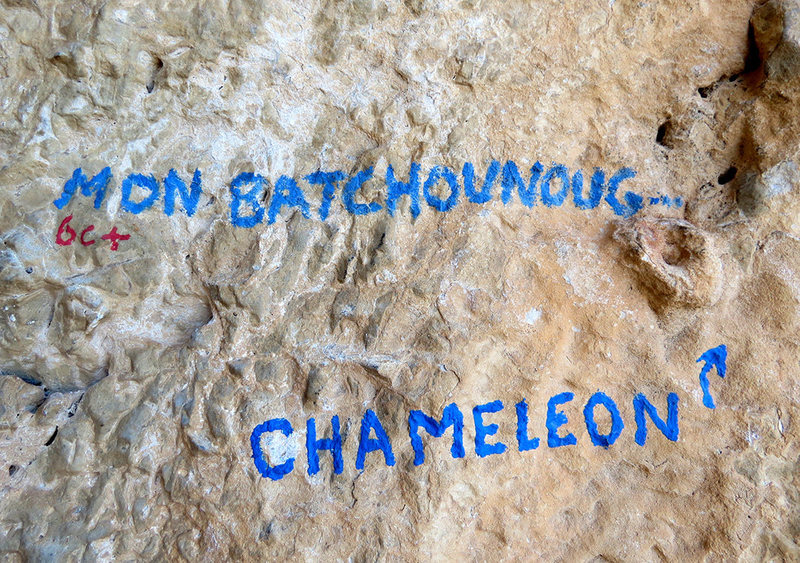 MON BATCHOUNOUG...
6c+
CHAMELEON